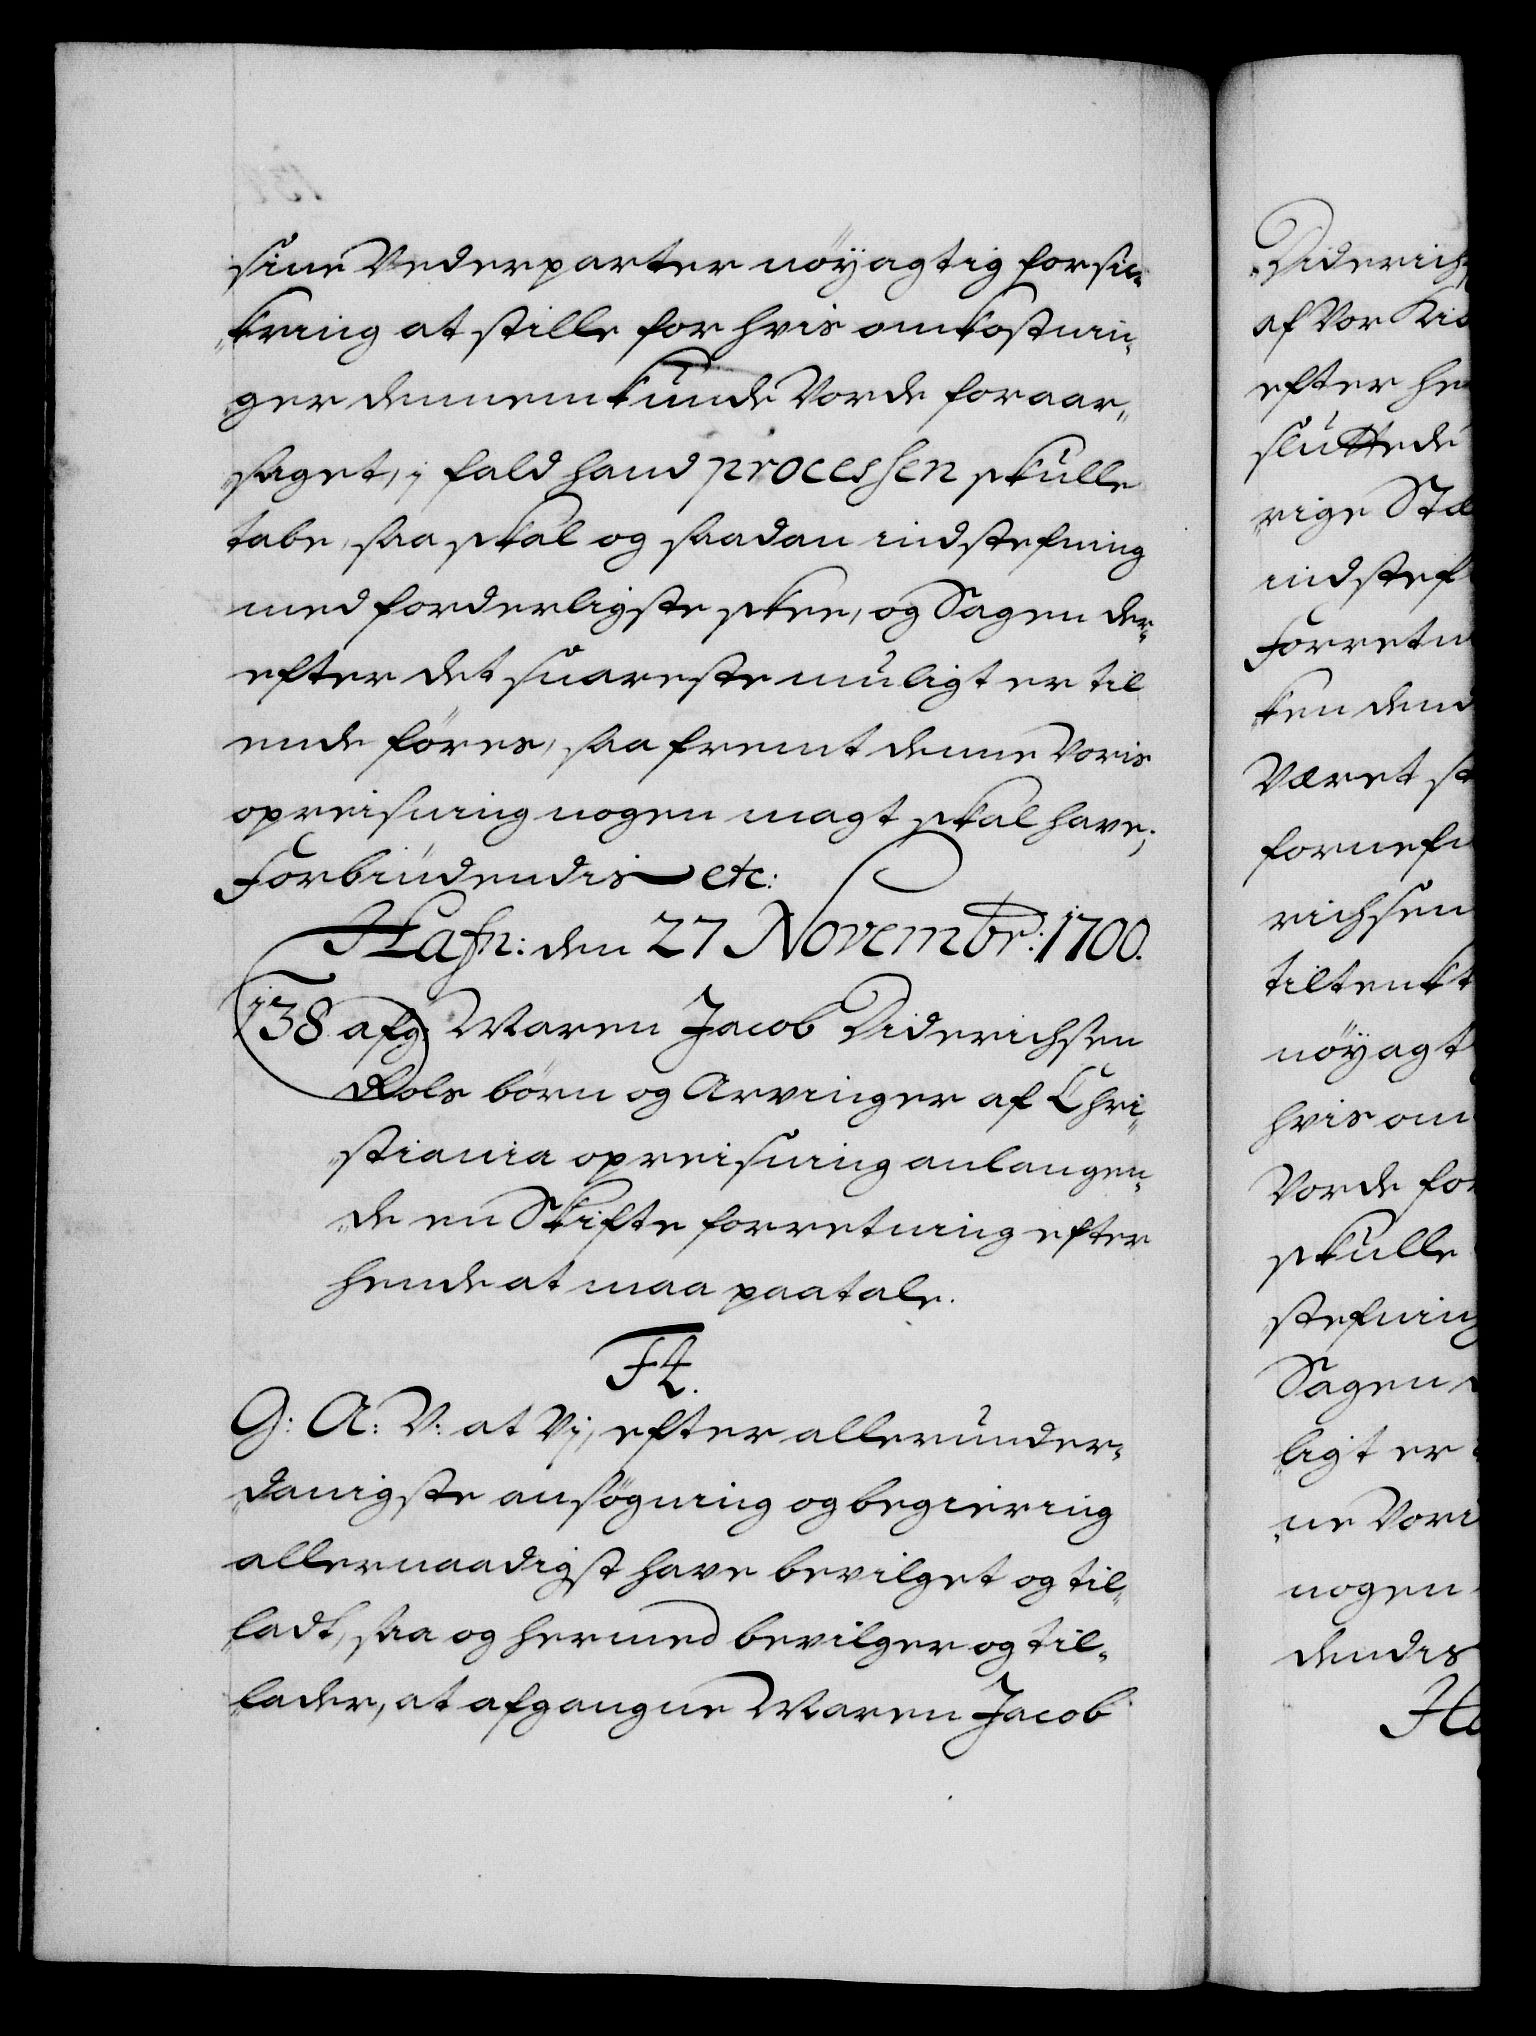 sine Vederparter nöyagtig forsic„
„kring at stille for hvis omkostnin„
„ger dennem kunde Vorde foraar„
„saget, i fald hand processen skulle
tabe, saa skal og saadan indstefning
med forderligste skee, og Sagen der„
efter det snareste muligt er til
ende föres, saa fremt denne Voris
opreisning nogen magt skal have;
Forbiudendis etc:
Hafn: den 27 Novembr: 1700.
138 afg: Maren Jacob Diderichsen
Rols börn og Arvinger af Chri„
„stiania opreisning anlangen„
„de en Skifte forretning efter
hende at maa paatale.
F4.
G: A: V: at Vj, efter allerunder„
„danigste ansögning og begiering
allernaadigst have bevilget og til„
„ladt, saa og hermed bevilger og til„
„lader, at afgangne Maren Jacob
Diderichs
af Vor
efter
sluttede
rige
indstef
Forretn
ken dend
Været
fornefn
richsen
tiltenkt
nöyagt
hvis om
Vorde for
skulle
stefning
Sagen
ligt er
„ne Vori
nogen
dendis